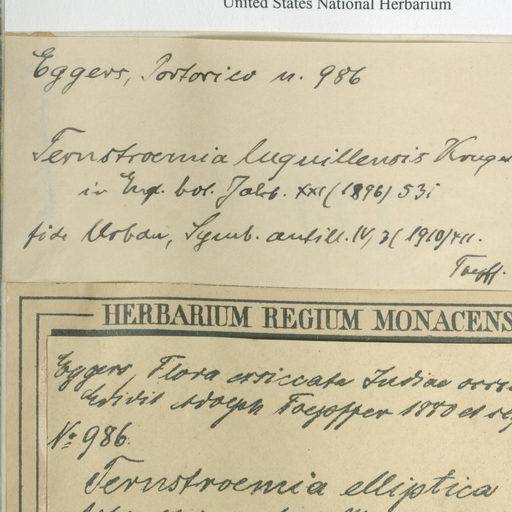 United States National Herbarium
Eggers, Portorico n. 986
Ternstroemia luquillensis Krug
in Engl. bot. Jahrb. XXI (1896) 531
fide Urban, Symb. antill. IV, 3 (1910)
Toepff.
HERBARIUM REGIUM MONACENS
Eggers, Flora exsiccata Indiae occ
Edidit Adolph Toepffer 1880 et
No 986.
Ternstroemia elliptica